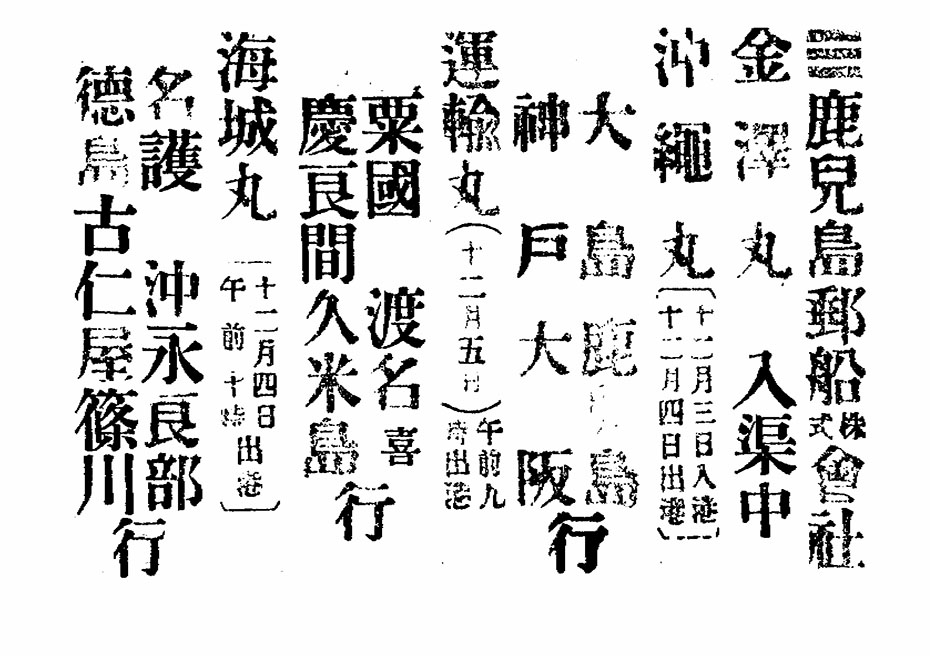 鹿兒島郵船株式會社
金澤丸 入渠中
沖繩丸(十二月三日入港
十二月四日出港)
大島鹿兒島
神戸大阪行
運輸丸(十二月五日)午前九
時出港
粟國 渡名喜
慶良間久米島行
海城丸(十二月四日
午前十時出港)
名護 沖永良部
德島古仁屋篠川行